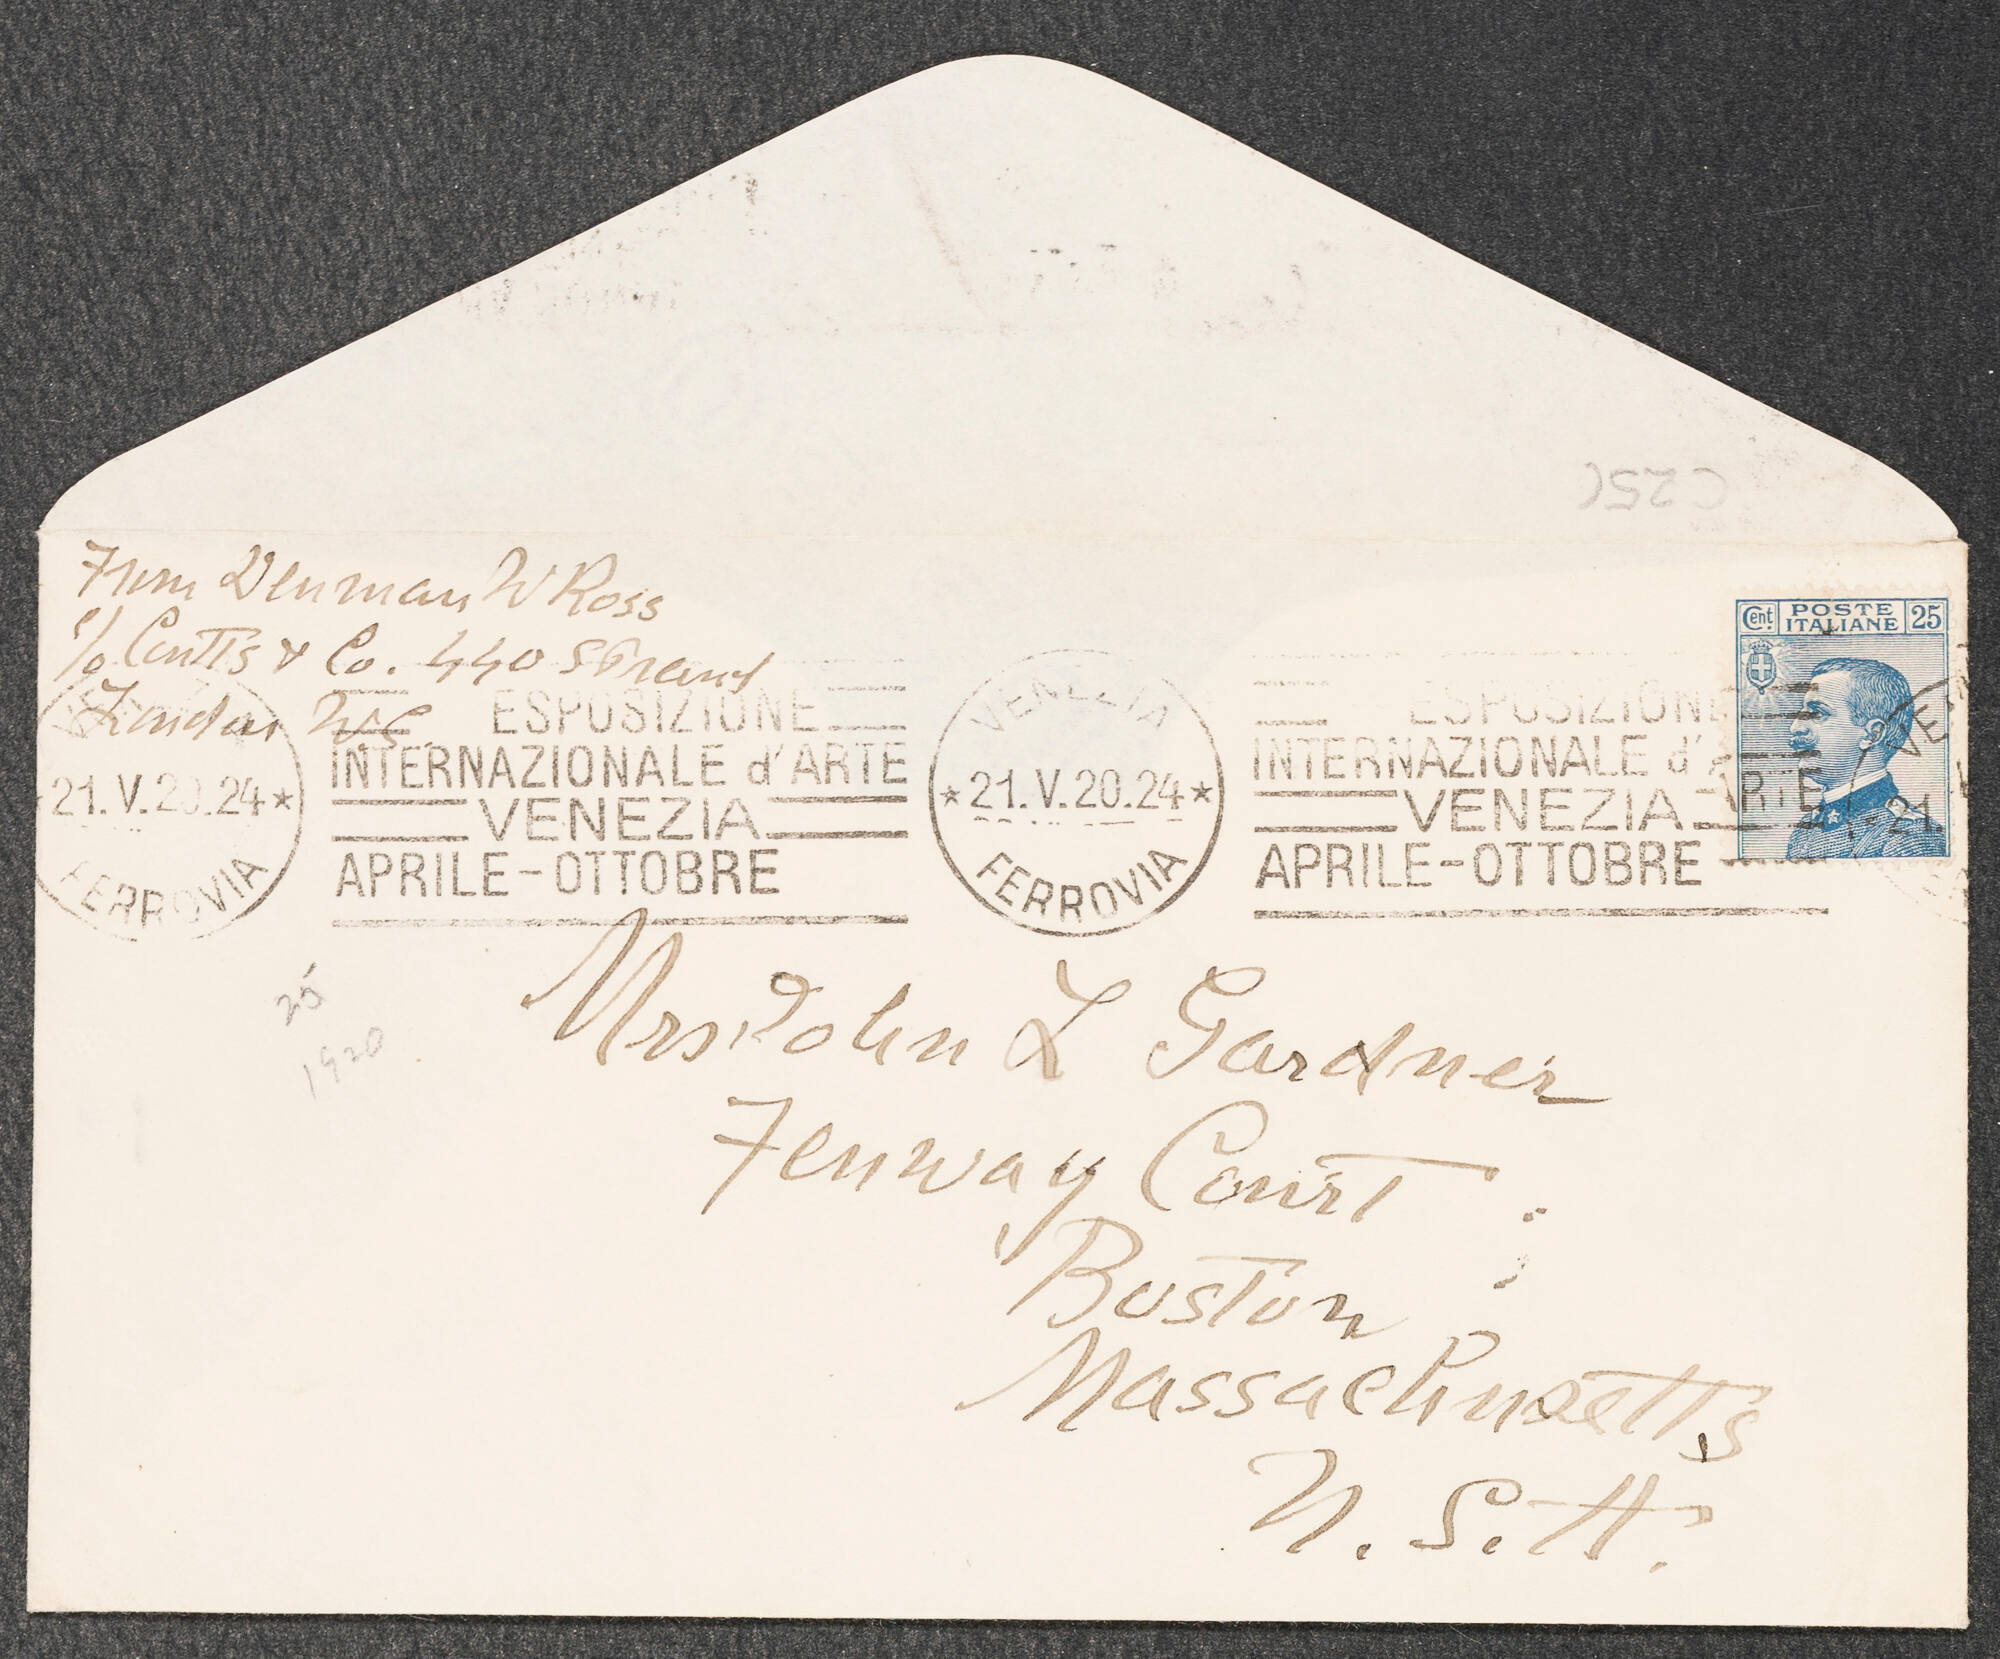 C25(
From Denman W Ross
c/o Coutts & Co. 440 Strand
London W.C.
Cent. POSTE ITALIANE 25
21.V.20.24 *
FERROVIA
ESPOSIZIONE
INTERNAZIONALE d'ARTE
VENEZIA
APRILE-OTTOBRE
VENEZIA
* 21.V.20.24 *
FERROVIA
ESPOSIZIONE
INTERNAZIONALE d'ARTE
VENEZIA
APRILE-OTTOBRE
VE
21.
25
1920
Mrs John L Gardner
Fenway Court
Boston
Massachusetts
U.S.A.